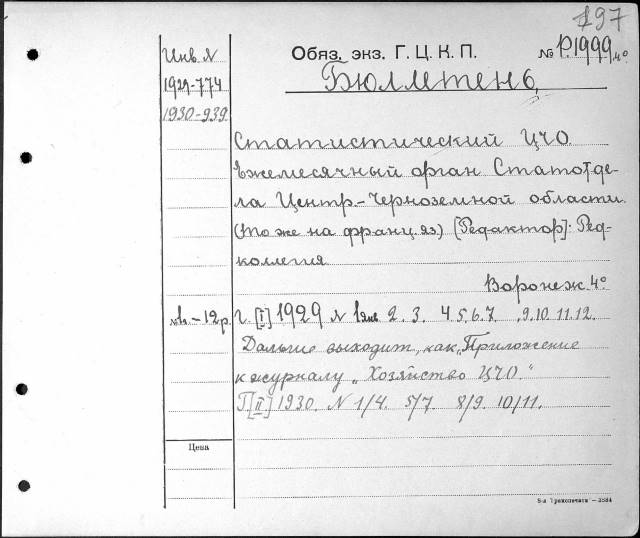 197
Инв. N
Обяз. экз. Г. Ц. К. П.
№ P1999 4°
1929-774
Бюллетень,
1930-939.
Статистический ЦЧО.
Ежемесячный орган Статотде-
ла Центр.-Черноземной области.
(то же на франц. яз.) [Редактор]: Ред-
коллегия.
Воронеж. 4°
-12р.
г. [I] 1929 N 1 янв 2. 3. 4. 5. 6. 7. 9. 10. 11. 12.
Дальше выходит, как „Приложение
к журналу „Хозяйство ЦЧО."
Г. [II] 1930. N 1/4. 5/7. 8/9. 10/11.
Цена